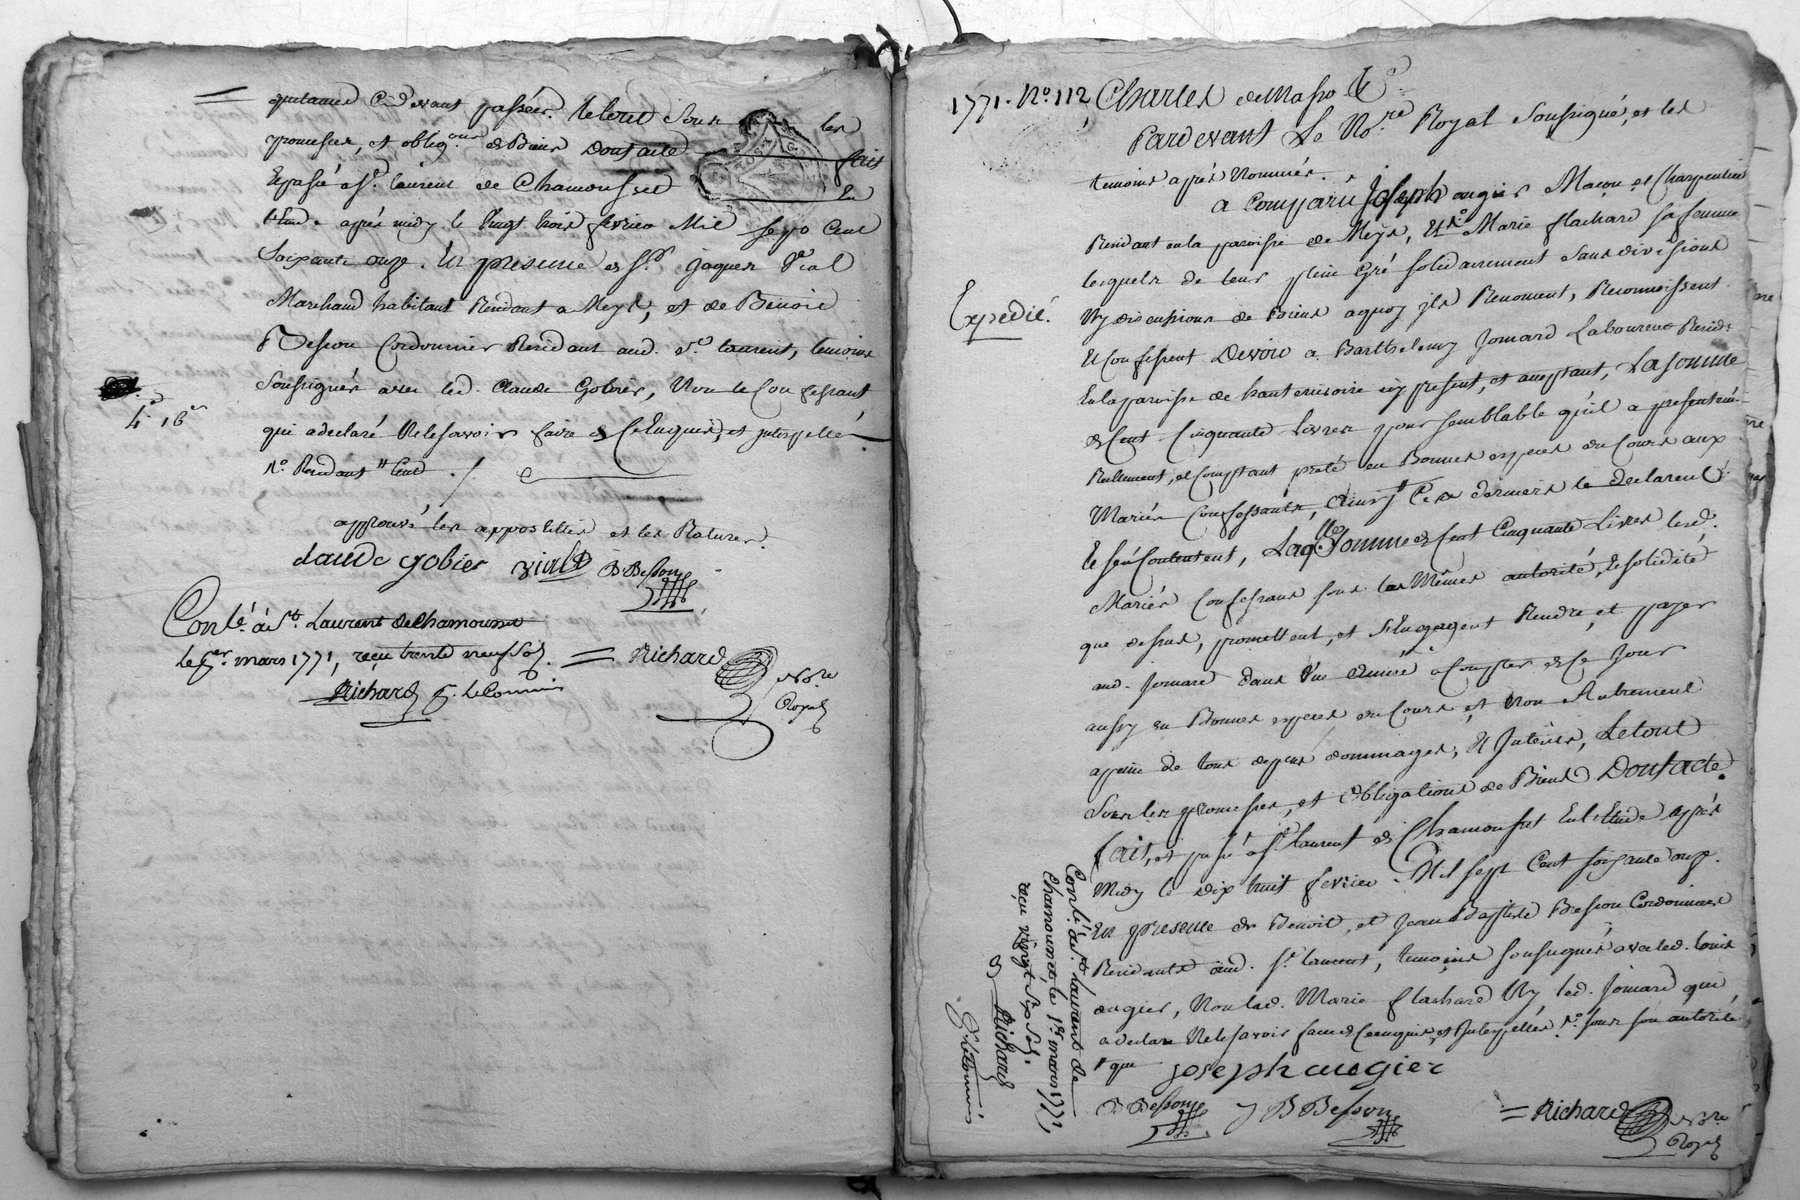 quitance Cy devant passée. Le tout Sous les
promesses, et oblig.ons de Biens Dont acte fait
Et passé a S.t Laurent de Chamousset En
L'Etude après midy le vingt trois fevrier Mil Sept Cent
Soixante onze. En presence de S.r Jaques Vial
Marchand habitant Residant a Meys, et de Benoit
Besson Cordonnier Residant aud. S.t Laurent, temoins
Soussignés avec led. Claude Gobier, Non le Confessant
qui a declaré Ne le Savoir faire de Ce Enquis, et interpellé
R.o Residant
4.d 16
approuvé les appostilles et les Ratures.
Claude gobier vial B Besson
Con.lé à S.t Laurent de Chamousset
le 1.er mars 1771, reçu trente neuf Sols. Richard No.re Royal
Richard
1771. N.o 112 Charles
Pardevant Le No.re Royal Soussigné, et les
temoins après Nommés.
a Comparu Joseph augier Maçon et Charpentier
Residant en la paroisse de Meys, Et Marie flachard sa femme
lesquels de leur plein Gré solidairement Sans divisions
Expedié.
Ny discussions de Biens aquoy ils Renoncent, Reconnoissent
Et Confessent Devoir a Barthelemy Jomard Laboureur Resid.t
En la paroisse de hauterivoire icy present, et acceptant, La Somme
de Cent Cinquante Livres pour semblable qu'il a presentem.t
Reellement, et Comptant preté en Bonnes especes du Cours aux
Mariés Confessants, ainsy que Ces derniers le declarent
Et s'en Contentent, Laq.lle Somme de Cent Cinquante Livres lesd.
Mariés Confessans sous les Mêmes autorité, et solidité
que dessus, promettent, et S'Engagent Rendre, et payer
aud. Jomard dans Une année a Compter de Ce Jour
aussy en Bonnes especes du Cours et Non Autrement
apeine de tous depens dommages, Et Interets, Le tout
Sous les promesses, et Obligations de Biens Dont acte.
fait, et passé a S.t Laurent de Chamousset En l'Etude après
Midy le dix huit fevrier Mil Sept Cent soixante onze.
En presence de Benoit, et Jean Baptiste Besson Cordonniers
Residants aud. S.t Laurent, temoins soussignés avec led.
augier, Non lad. Marie flachard Ny led. Jomard qui
a declaré Ne le Savoir faire de Ce enquis, et Interpellés. R.o sous son autorité
que joseph augier
B Besson J B Besson Richard No.re Royal
Con.lé à S.t Laurent de
Chamousset le 1.er mars 1771,
reçu vingt six Sols.
Richard